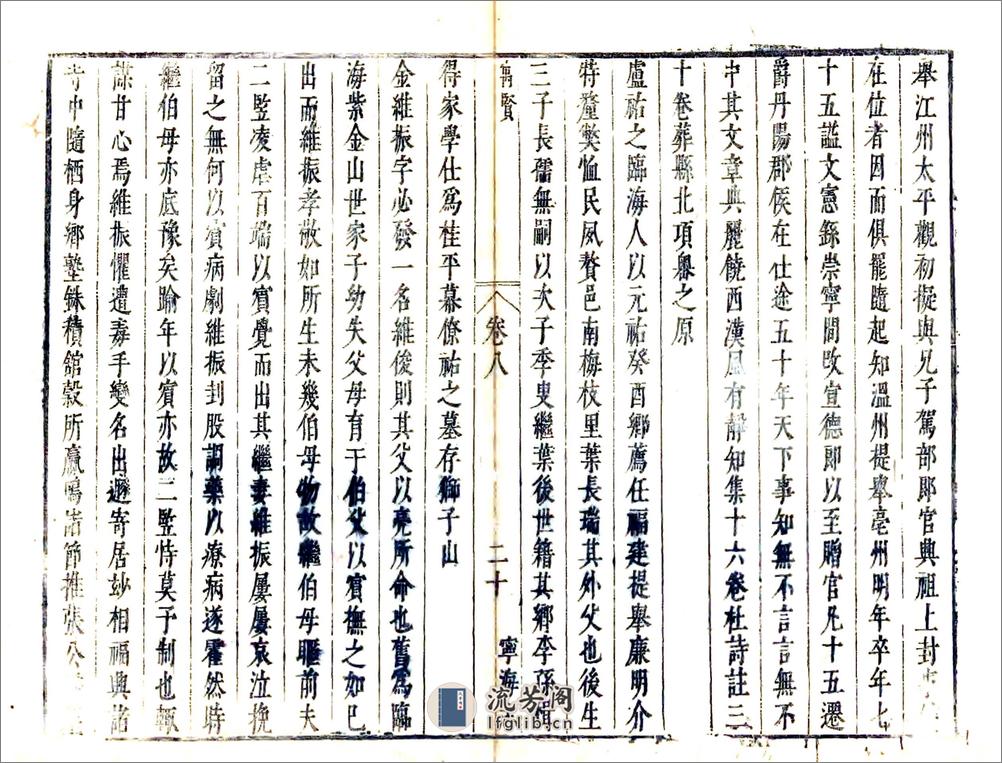 舉江州太平觀初擬與兄子駕部郎官典祖上封
在位者因而俱罷隨起知溫州提舉亳州明年卒年七
十五謚文憲錄崇寧間改宣德郎以至贈官凡十五遷
爵丹陽郡侯在仕途五十年天下事知無不言言無不
中其文章典麗饒西漢風有靜知集十六卷杜詩註三
十卷葬縣北項舉之原
盧祐之臨海人以元祐癸酉鄉薦任福建提舉廉明介
特釐獘恤民夙贅邑南梅枝里葉長瑞其外父也後生
三子長孺無嗣以次子季叟繼葉後世籍其鄉李孫恆
寓賢
卷八
二十
寧海
得家學仕為桂平幕僚祐之墓存獅子山
金維振字必發一名維俊則其父以亮所命也舊為臨
海紫金山世家子幼失父母育于伯父以賓撫之如已
出而維振孝敬如所生未幾伯母物故繼伯母驅前夫
二監凌虐百端以賓覺而出其繼妻維振屢屢哀泣挽
留之無何以賓病劇維振刲股調藥以療病遂霍然時
繼伯母亦底豫矣踰年以賓亦故二監恃莫予制也輒
謀甘心焉維振懼遭毒手變名出遯寄居竗相福與諸
寺中隨栖身鄉塾銖積舘穀所贏鳴諸節推張公
流芳阁
lfglib.cn